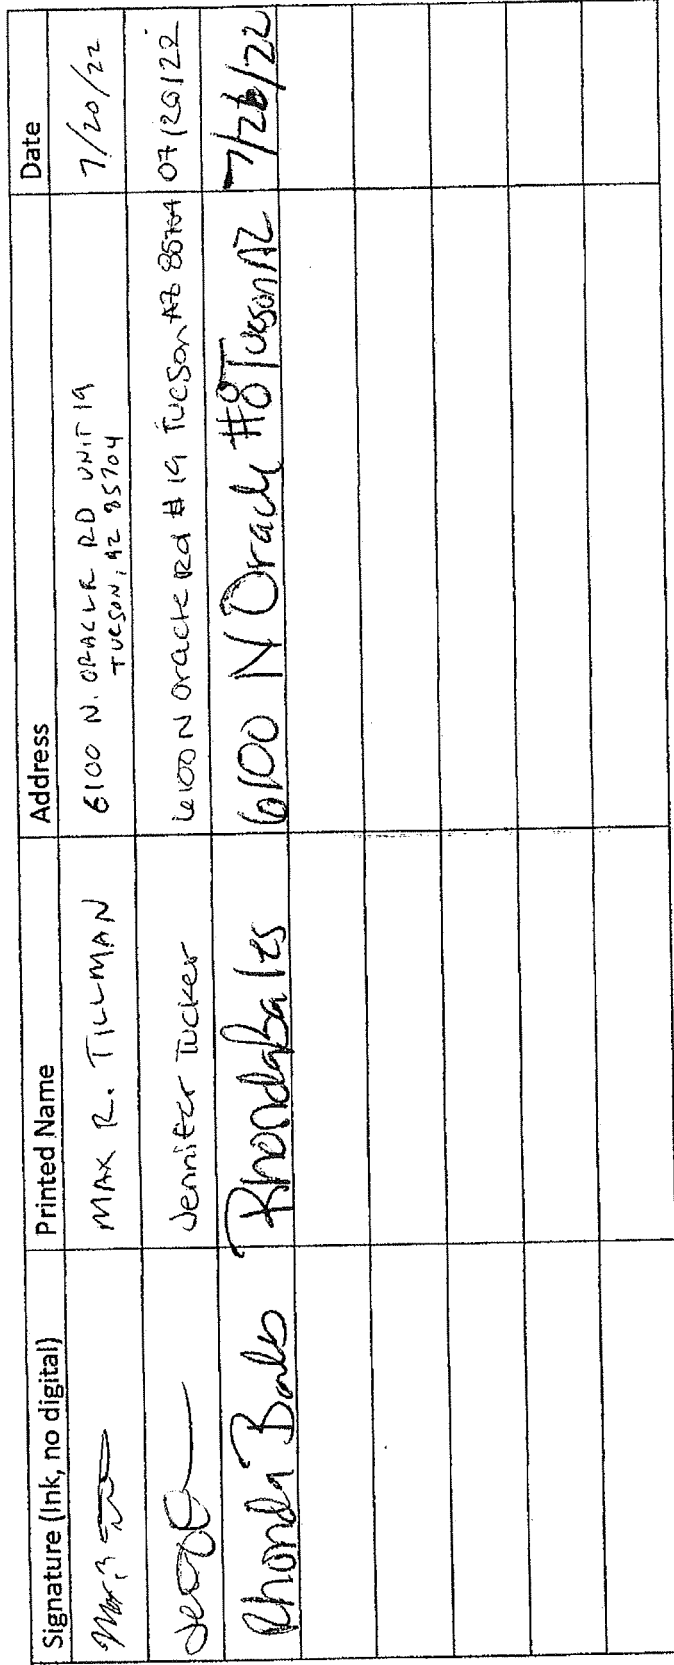 Signature (Ink, no digital) Printed Name Address Date
MAX R. TILLMAN 6100 N. ORACLE RD UNIT 19 7/20/22
TUCSON, AZ 85704
Jennifer Tucker 6100 N Oracle Rd #19 Tucson AZ 85704 07/20/22
Rhonda Bales Rhonda Bales 6100 N Oracle #8 Tucson AZ 7/26/22